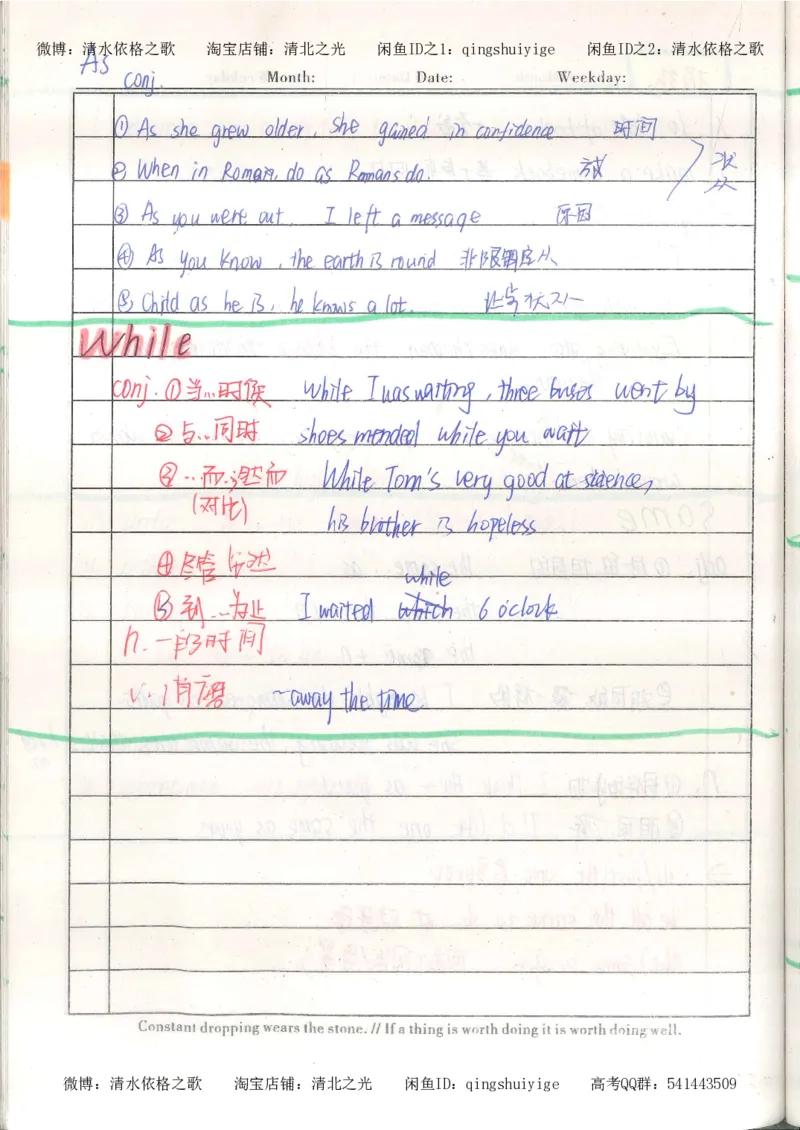 微博：清水依格之歌 淘宝店铺：清北之光 闲鱼ID之1：qingshuiyige 闲鱼ID之2：清水依格之歌
As
conj.
Month: Date: Weekday:
① As she grew older, she gained in confidence 时间
② When in Roman, do as Romans do. 方式
状从
③ As you were out, I left a message 原因
④ As you know, the earth is round 非限制定从
⑤ Child as he is, he knows a lot. 让步状从
While
conj. ①当…时候 while I was waiting, three buses went by
②与…同时 shoes mended while you wait
③…而;然而 While Tom's very good at science,
(对比) his brother is hopeless
④尽管 虽然
while
⑤到…为止 I waited which 6 o'clock
n. 一段时间
v. 消磨 ~away the time
Constant dropping wears the stone. // If a thing is worth doing it is worth doing well.
微博：清水依格之歌 淘宝店铺：清北之光 闲鱼ID：qingshuiyige 高考QQ群：541443509